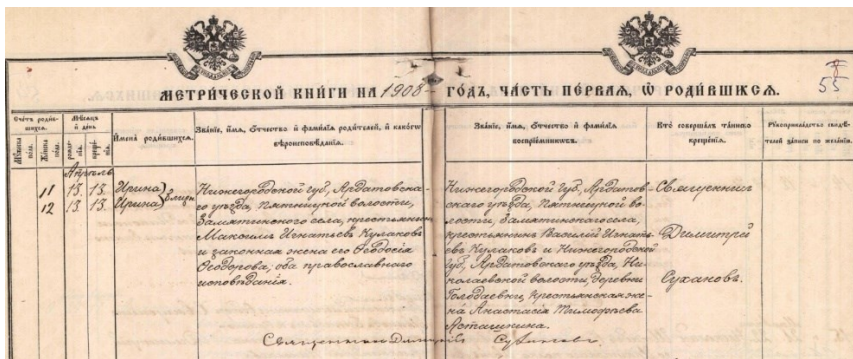 МЕТРИ́ЧЕСКОЙ КНИ́ГИ НА 1908 ГО́ДЪ, ЧА́СТЬ ПЕ́РВАЯ, Ѡ РОДИ́ВШИХСѦ.
55
Счетъ родившихся.
Мѣсяцъ и день
Имена родившихся.
Званіе, имя, отчество и фамилія родителей, и какого вѣроисповѣданія.
Званіе, имя, отчество и фамилія воспріемниковъ.
Кто совершалъ таинство крещенія.
Рукоприкладство свидѣтелей записи по желанію.
Апрѣль
11 13. 13. Ирина
12 13. 13. Ирина
Нижегородской губ., Ардатовска-
го уѣзда, Пятницкой волости,
Замятинского села, крестьянинъ
Максимъ Игнатьевъ Кулаковъ
и законная жена его Ѳеодосія
Ѳеодорова, оба православнаго
исповѣданія.
Нижегородской губ., Ардатов-
скаго уѣзда, Пятницкой во-
лости, Замятинскаго села,
крестьянинъ Василій Игнать-
евъ Кулаковъ и Нижегородской
губ., Ардатовскаго уѣзда, Ни-
колаевской волости, деревни
крестьянская же-
на Анастасія Тимофѣева
Асташкина.
Священникъ
Димитрій
Сухановъ.
Священникъ Димитрій Сухановъ